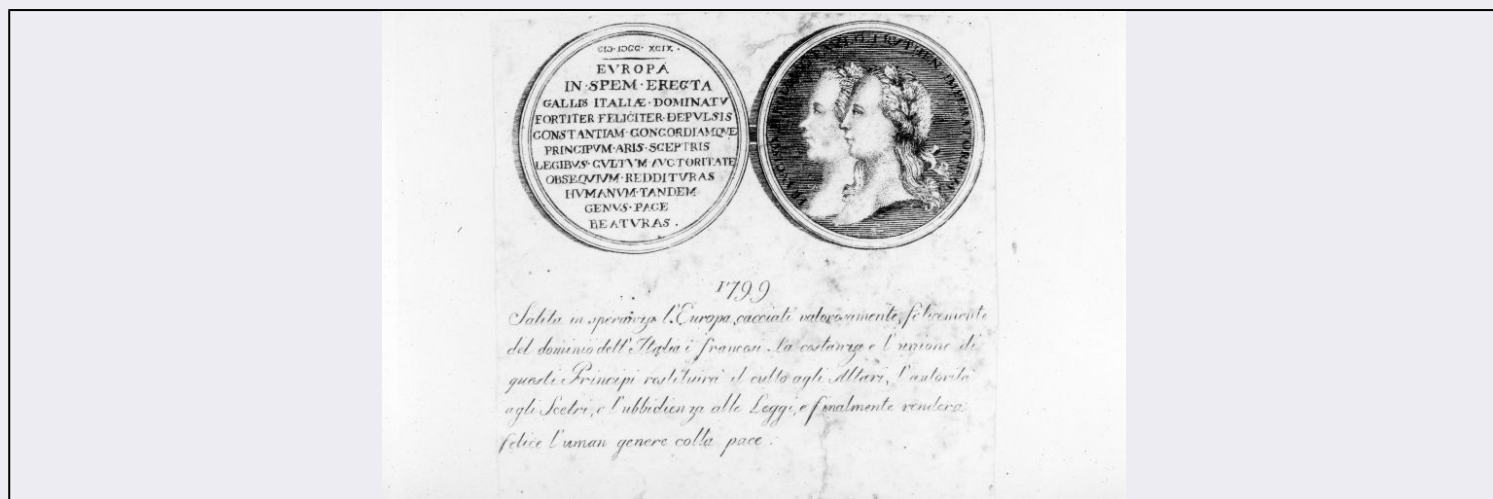 CIↃ·IↃCC·XCIX·
EVROPA
IN·SPEM·ERECTA
GALLIS ITALIÆ·DOMINATV
FORTITER FELICITER·DEPVLSIS
CONSTANTIAM·CONCORDIAMQVE
PRINCIPVM·ARIS·SCEPTRIS
LEGIBVS·CVLTVM AVCTORITATE
OBSEQVIVM·REDDITVRAS
HVMANVM·TANDEM
GENVS·PACE
BEATVRAS.
1799
Salita in speranza l'Europa, cacciati valorosamente, felicemente
del dominio dell'Italia i francesi. La costanza e l'unione di
questi Principi restituirà il culto agli Altari, l'autorità
agli Scetri, e l'ubbidienza alle Leggi, e finalmente renderà
felice l'uman genere colla pace.